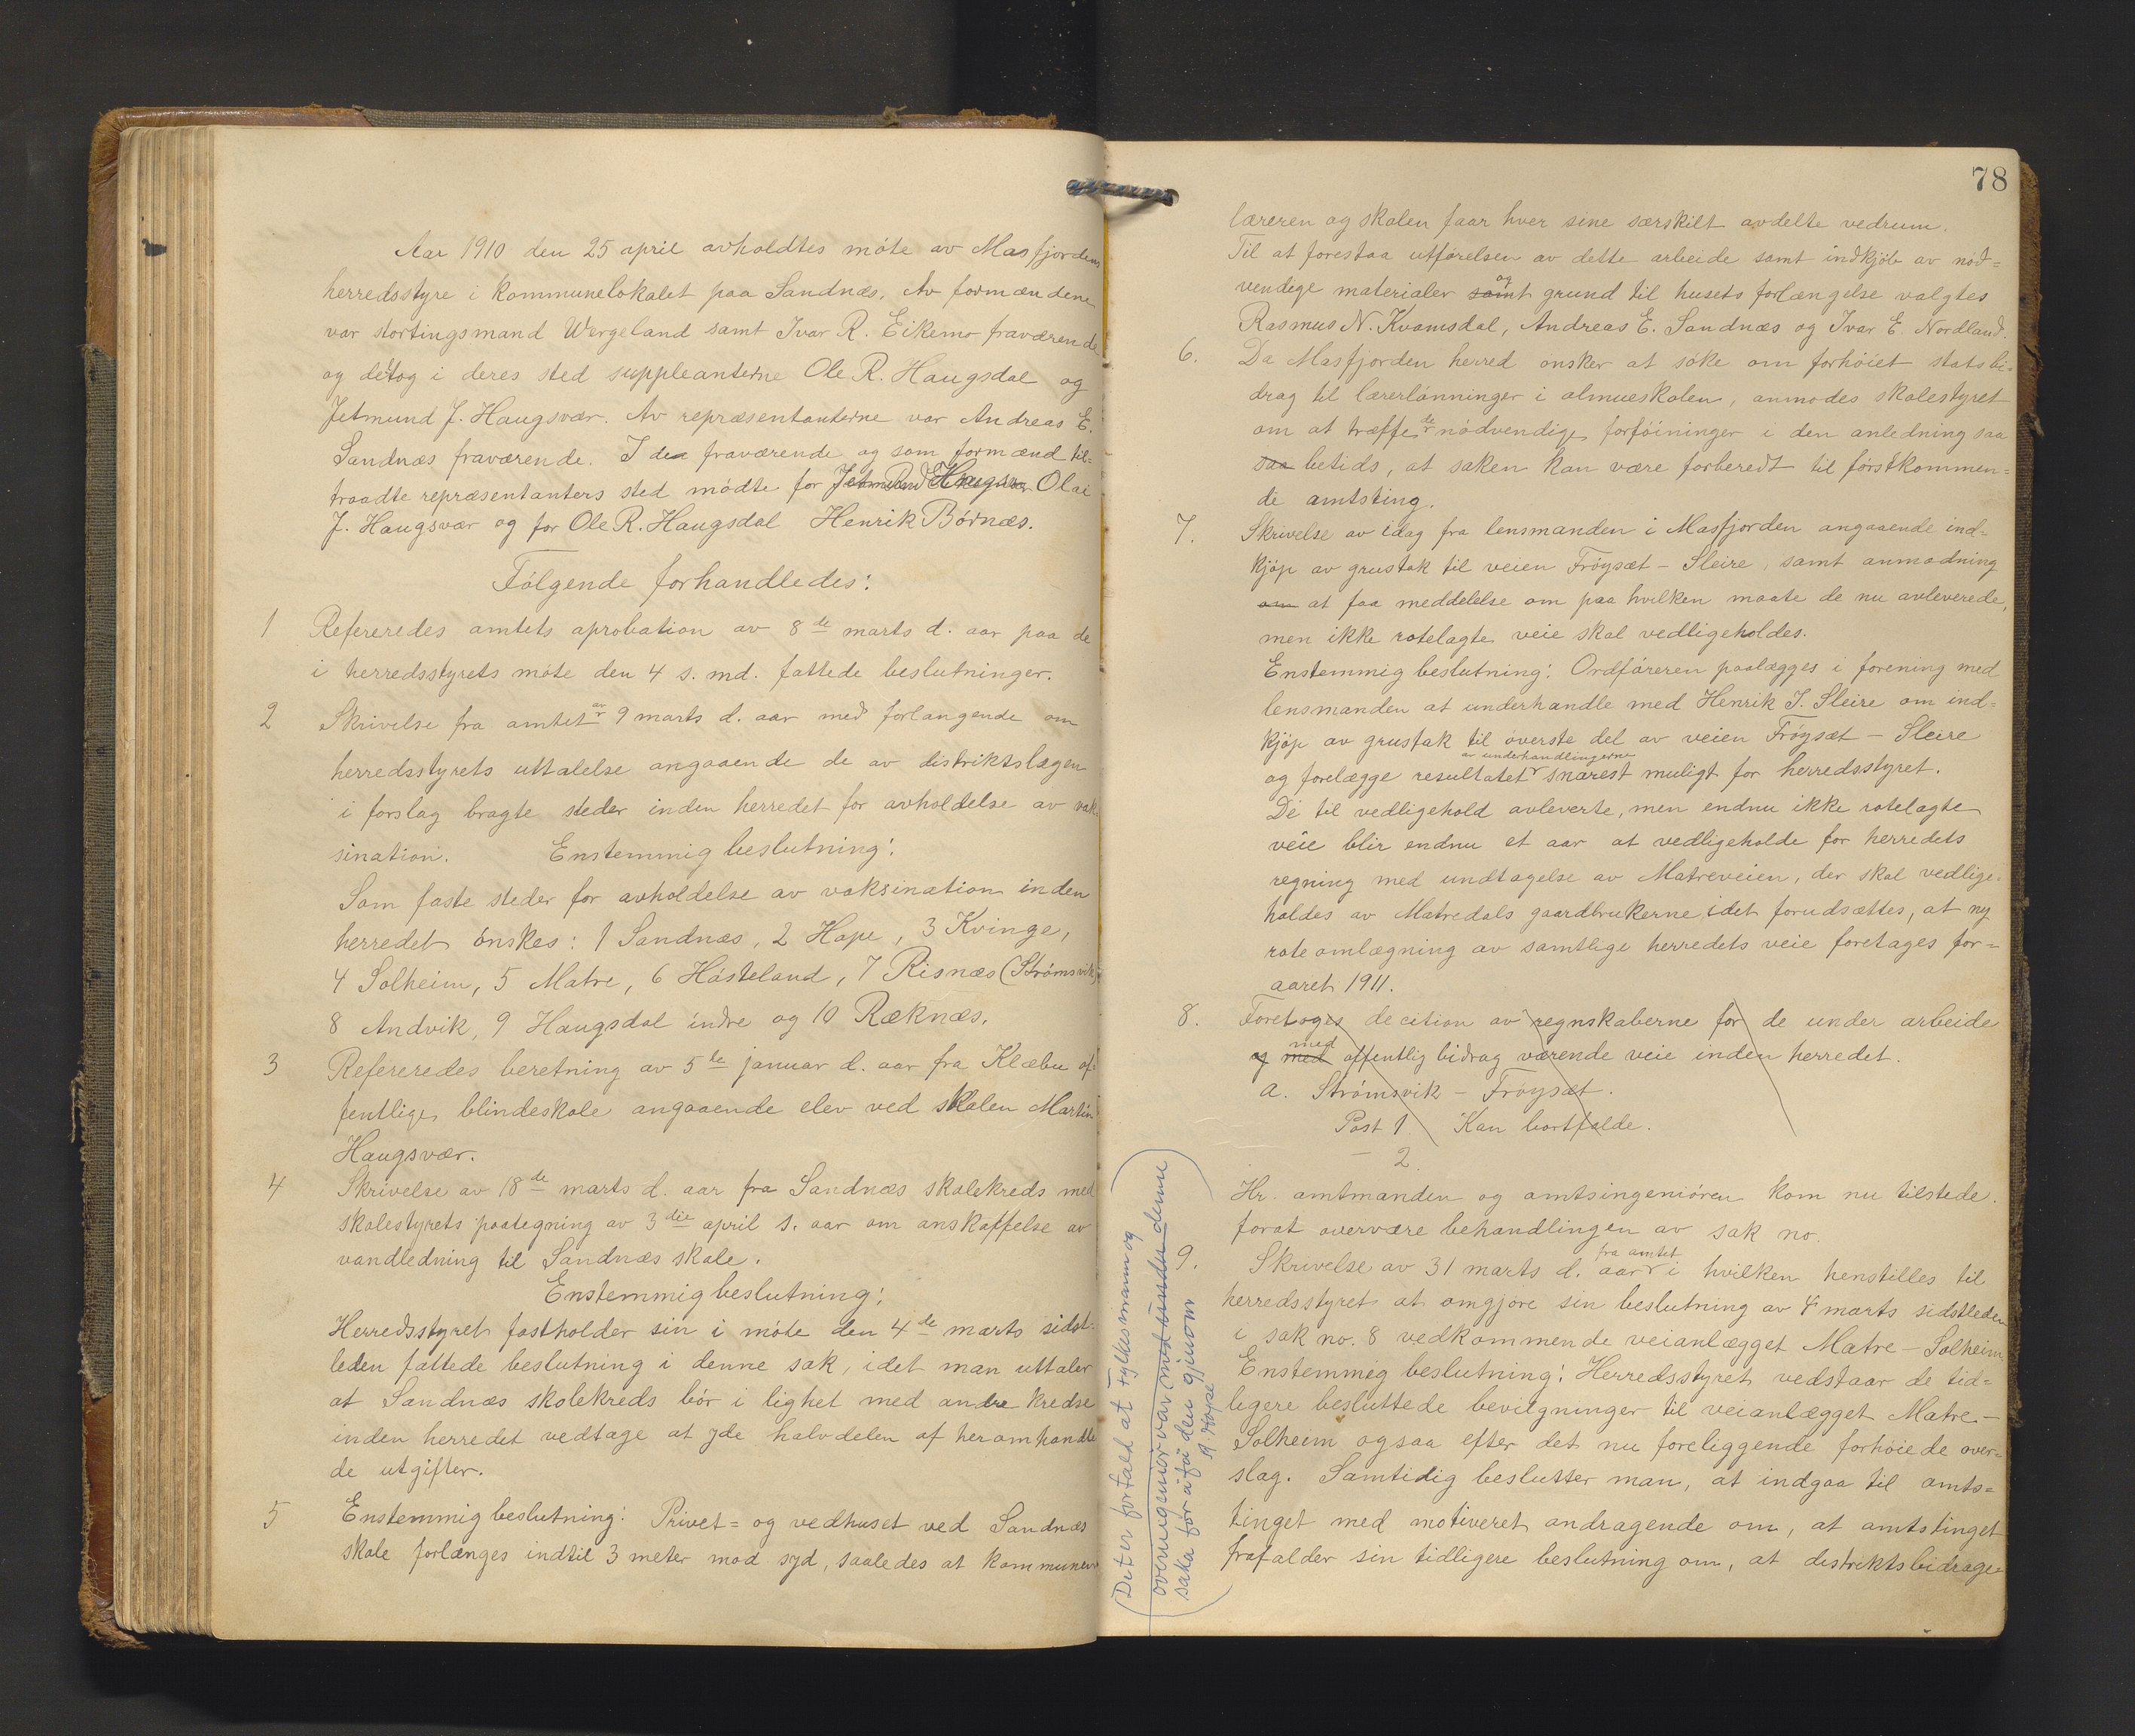 Aar 1910 den 25 april avholdtes möte av Masfjordens
herredsstyre i kommunelokalet paa Sandnæs. Av formændene
var stortingsmand Wergeland samt Ivar R. Eikemo fraværende
og deltog i deres sted suppleanterne Ole R. Haugsdal og
Jetmund J. Haugsvær. Av repræsentanterne var Andreas E.
Sandnæs fraværende. I den fraværende og som formænd til-
traadte repræsentanters sted mödte for Jetmund Haugsvær Olai
J. Haugsvær og for Ole R. Haugsdal Henrik Börnæs.
Fölgende forhandledes:
1 Refereredes amtets aprobation av 8de marts d. aar paa de
i herredsstyrets möte den 4 s. md. fattede beslutninger.
2 Skrivelse fra amtet av 9 marts d. aar med forlangende om
herredsstyrets uttalelse angaaende de av distriktslægen
i forslag bragte steder inden herredet for avholdelse av vak-
sination. Enstemmig beslutning:
Som faste steder for avholdelse av vaksination inden
herredet önskes: 1 Sandnæs, 2 Hope, 3 Kvinge,
4 Solheim, 5 Matre, 6 Hösteland, 7 Risnæs (Strömsvik)
8 Andvik, 9 Haugsdal indre og 10 Ræknæs.
3 Refereredes beretning av 5te januar d. aar fra Klæbu of-
fentlige blindeskole angaaende elev ved skolen Martin
Haugsvær.
4 Skrivelse av 18de marts d. aar fra Sandnæs skolekreds med
skolestyrets paategning av 3die april s. aar om anskaffelse av
vandledning til Sandnæs skole.
Enstemmig beslutning:
Herredsstyret fastholder sin i möte den 4de marts sidst-
leden fattede beslutning i denne sak, idet man uttaler
at Sandnæs skolekreds bör i lighet med andre kredse
inden herredet vedtage at yde halvdelen af heromhandle
de utgifter.
5 Enstemmig beslutning: Privet= og vedhuset ved Sandnæs
skole forlænges indtil 3 meter mod syd, saaledes at kommunen
78
læreren og skolen faar hver sine særskilt avdelte vedrum.
Til at forestaa utförelsen av dette arbeide samt indkjöb av nöd=
vendige materialer samt og grund til husets forlængelse valgtes
Rasmus N. Kvamsdal, Andreas E. Sandnæs og Ivar E. Nordland.
6. Da Masfjorden herred önsker at söke om forhöiet statsbi=
drag til lærerlönninger i almueskolen, anmodes skolestyret
om at træffe de nödvendige forföininger i den anledning saa
saa betids, at saken kan være forberedt til förstkommen=
de amtsting.
7. Skrivelse av idag fra lensmanden i Masfjorden angaaende ind=
kjöp av grustak til veien Fröysæt – Sleire, samt anmodning
om at faa meddelelse om paa hvilken maate de nu avleverede,
men ikke rotelagte veie skal vedligeholdes.
Enstemmig beslutning: Ordföreren paalægges i forening med
lensmanden at underhandle med Henrik J. Sleire om ind=
kjöp av grustak til överste del av veien Fröysæt – Sleire
og forelægge resultatet av underhandlingerne snarest muligt for herredsstyret.
De til vedligehold avleverte, men endnu ikke rotelagte
veie blir endnu et aar at vedligeholde for herredets
regning med undtagelse av Matreveien, der skal vedlige=
holdes av Matredals gaardbrukerne, idet forudsættes, at ny
rote omlægning av samtlige herredets veie foretages for=
aaret 1911.
8. Foretoges decition av regnskaberne for de under arbeide
og med med offentlig bidrag værende veie inden herredet.
a. Strömsvik – Fröysæt.
Post 1 Kan bortfalde.
– 2.
Hr. amtmanden og amtsingeniören kom nu tilstede.
forat overvære behandlingen av sak no.
9. Skrivelse av 31 marts d. aar fra amtet i hvilken henstilles til
herredsstyret at omgjöre sin beslutning av 4 marts sidstleden
i sak no. 8 vedkommende veianlægget Matre – Solheim
Enstemmig beslutning: Herredsstyret vedstaar de tid=
ligere besluttede bevilgninger til veianlægget Matre –
Solheim ogsaa efter det nu foreliggende forhöiede over=
slag. Samtidig beslutter man, at indgaa til amts=
tinget med motiveret andragende om, at amtstinget
frafalder sin tidligere beslutning om, at distriktsbidrage=
(Det er fortald at fylkesmann og
overingeniör var denne
saka for å få den gjenom